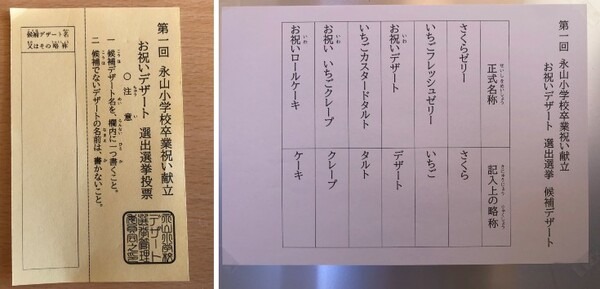 第一回 永山小学校卒業祝い献立
お祝いデザート 選出選挙投票
〇 注 意
一 候補デザート名を、欄内に一つ書くこと。
二 候補でないデザートの名前は、書かないこと。
候補デザート名
又はその略称
永山小学校
デザート
選挙管理
第一回 永山小学校卒業祝い献立
お祝いデザート 選出選挙 候補デザート
正式名称 記入上の略称
さくらゼリー さくら
いちごフレッシュゼリー いちご
お祝いデザート デザート
いちごカスタードタルト タルト
お祝い いちごクレープ クレープ
お祝いロールケーキ ケーキ